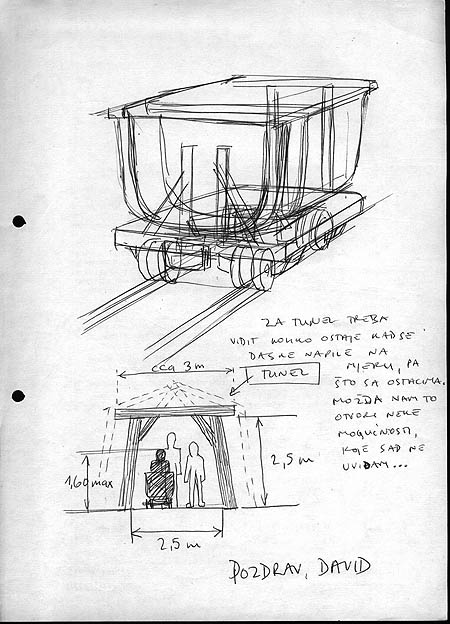 ZA TUNEL TREBA
VIDIT KOLIKO OSTAJE KAD SE
DASKE NAPILE NA
MJERU, PA
ŠTO SA OSTACIMA.
MOŽDA NAM TO
OTVORI NEKE
MOGUĆNOSTI,
KOJE SAD NE
UVIĐAM...
cca 3m
TUNEL
2,5 m
1,60 max
2,5 m
POZDRAV, DAVID